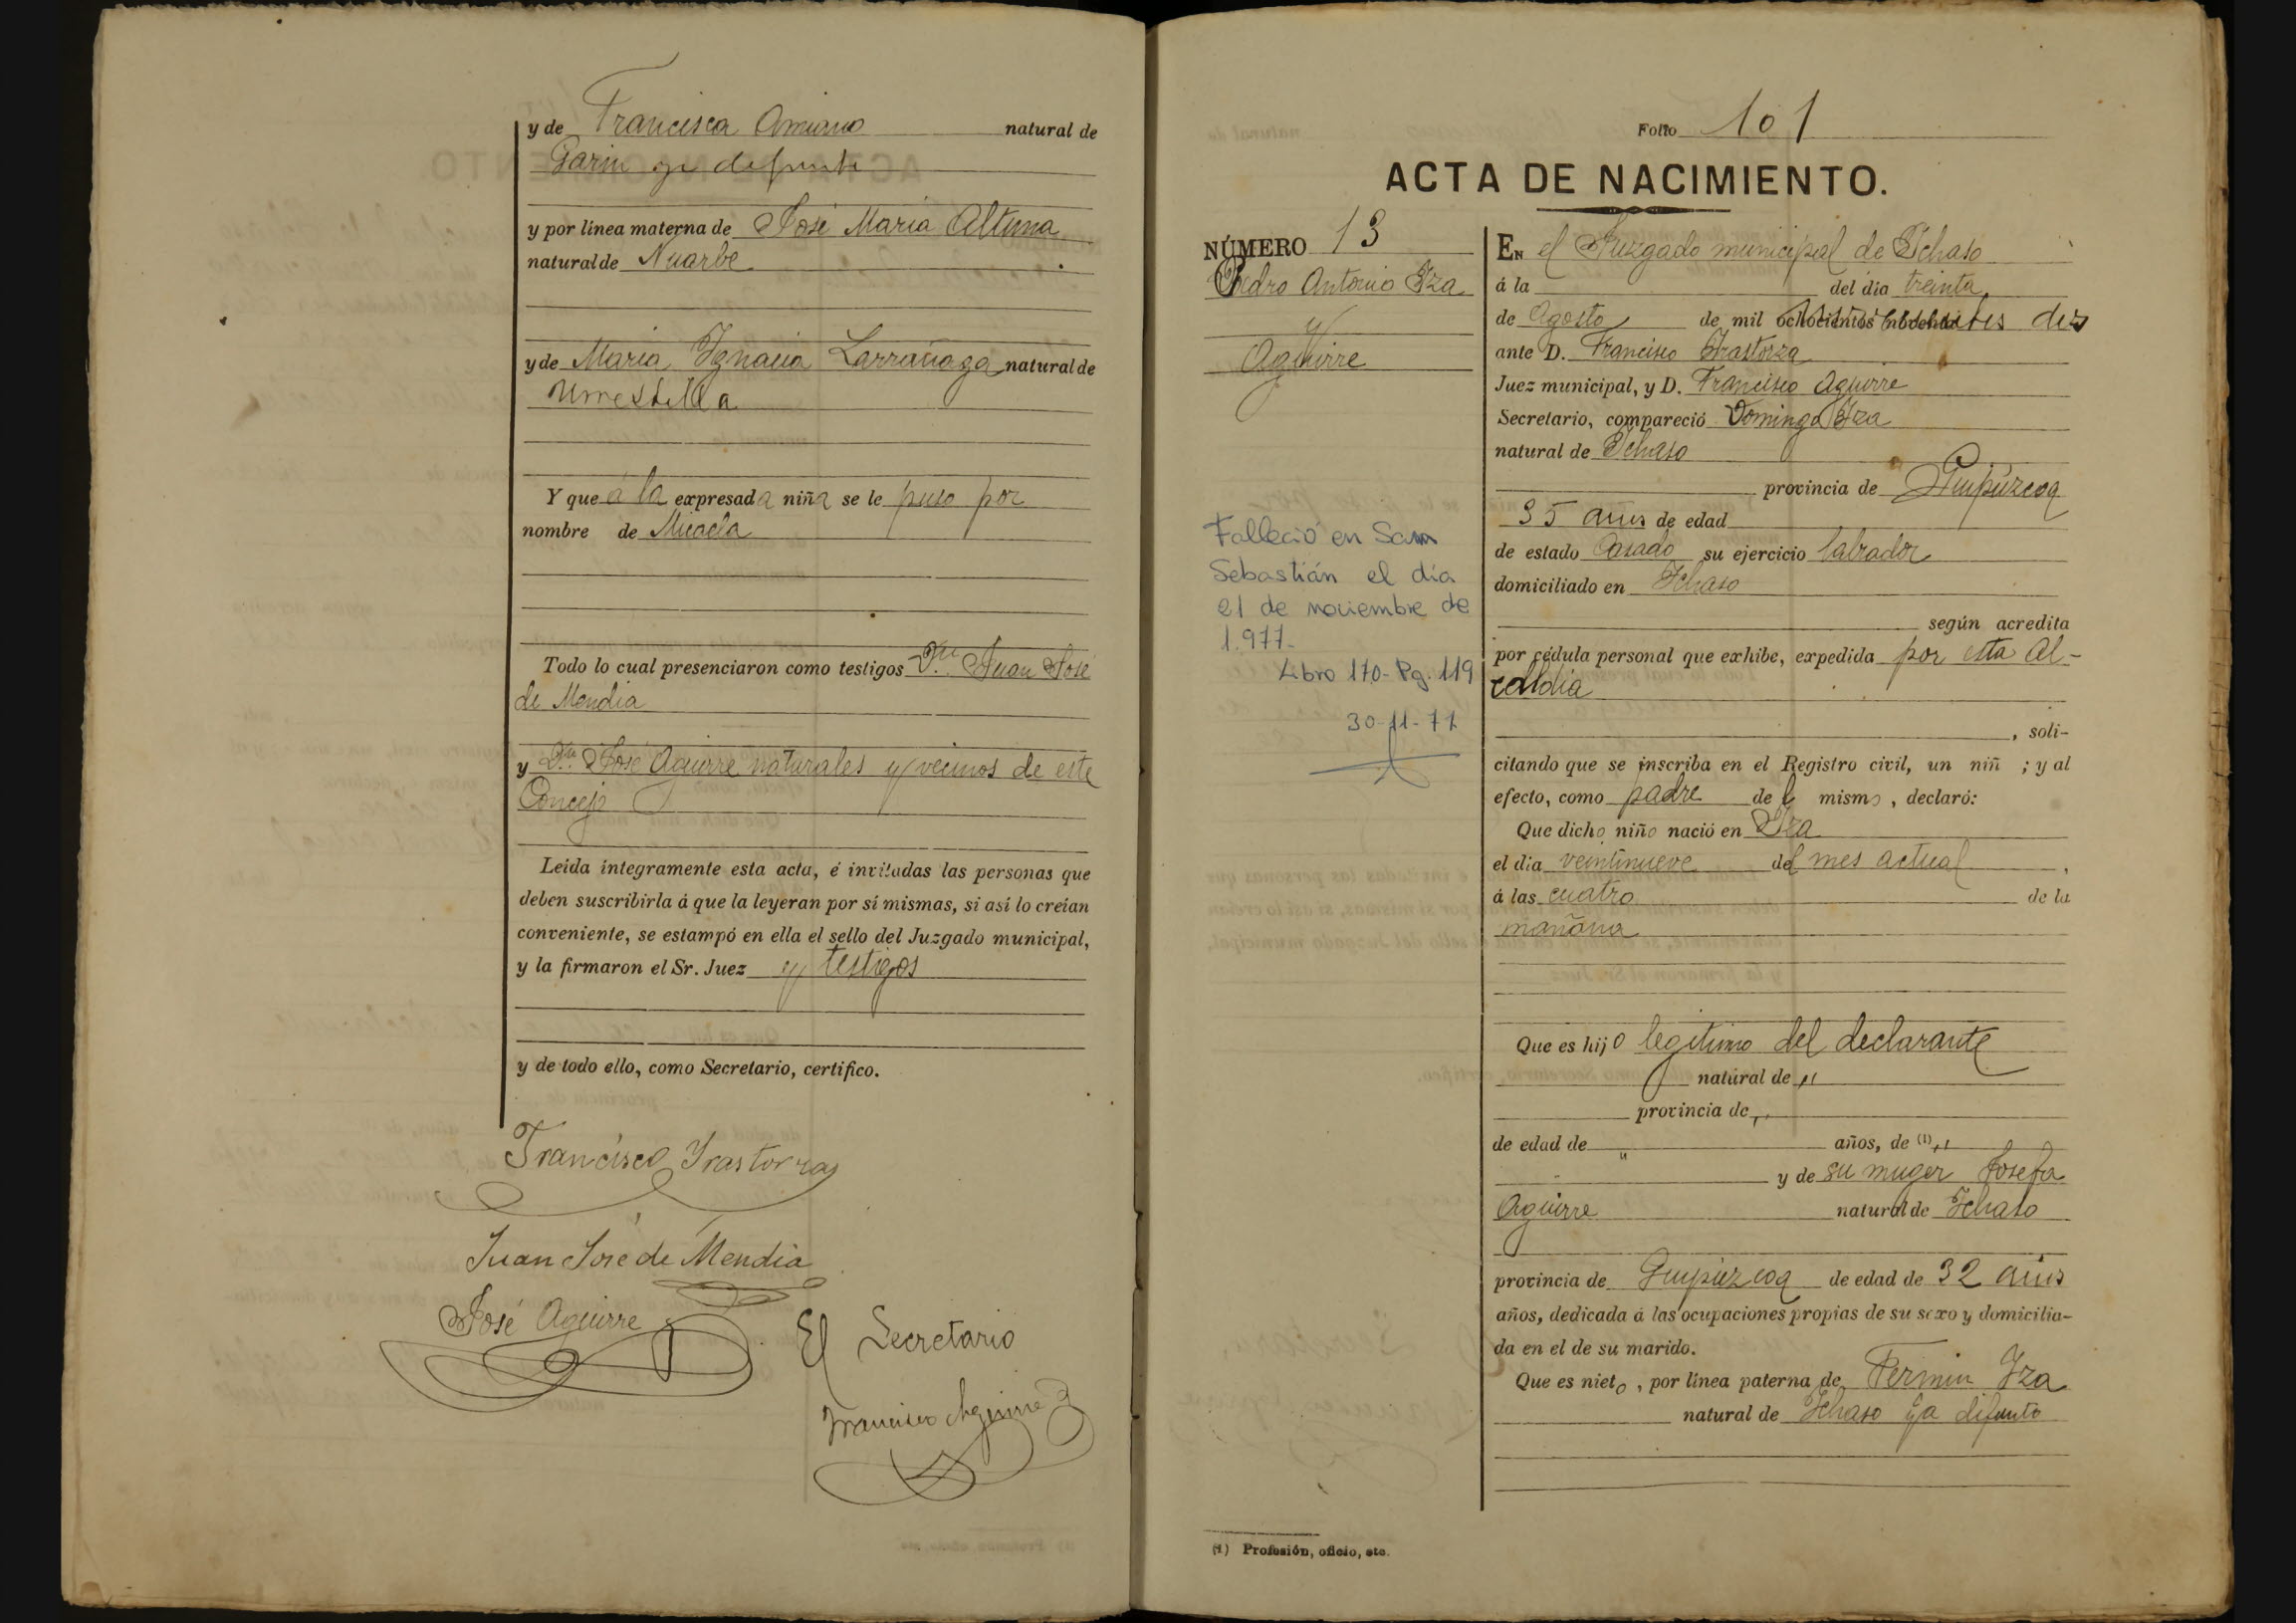 y de Francisca Amiano natural de
Garin ya defunta
y por línea materna de José Maria Altuna
natural de Nuarbe
y de Maria Ignacia Larrañaga natural de
Urrestilla
Y que á la expresada niña se le puso por
nombre de Micaela
Todo lo cual presenciaron como testigos Dn. Juan José
de Mendia
y Dn. José Aguirre naturales y vecinos de este
Concejo
Leida íntegramente esta acta, é invitadas las personas que
deben suscribirla á que la leyeran por sí mismas, si así lo creían
conveniente, se estampó en ella el sello del Juzgado municipal,
y la firmaron el Sr. Juez y testigos
y de todo ello, como Secretario, certifico.
Francisco Yrastorza
Juan José de Mendia
José Aguirre
El Secretario
Francisco Aguirre
Folio 101
ACTA DE NACIMIENTO.
NÚMERO 13
Pedro Antonio Iza
y
Aguirre
Falleció en San
Sebastián el día
21 de noviembre de
1.977.
Libro 170- Pg. 119
30-11-77
EN el Juzgado municipal de Ichaso
á la del dia treinta
de Agosto de mil ochocientos noventa diez
ante D. Francisco Irastorza
Juez municipal, y D. Francisco Aguirre
Secretario, compareció Domingo Iza
natural de Ichaso
provincia de Guipúzcoa
35 años de edad
de estado Casado su ejercicio labrador
domiciliado en Ichaso
según acredita
por cédula personal que exhibe, expedida por esta Al-
caldia
, soli-
citando que se inscriba en el Registro civil, un niñ ; y al
efecto, como padre de l mismo , declaró:
Que dicho niño nació en Iza
el dia veintinueve del mes actual ,
á las cuatro de la
mañana
Que es hijo legitimo del declarante
natural de "
provincia de "
de edad de " años, de (1) "
y de su muger Josefa
Aguirre natural de Ichaso
provincia de Guipúzcoa de edad de 32 años
años, dedicada á las ocupaciones propias de su sexo y domicilia-
da en el de su marido.
Que es nieto , por línea paterna de Fermin Iza
natural de Ichaso ya difunto
(1) Profesión, oficio, etc.